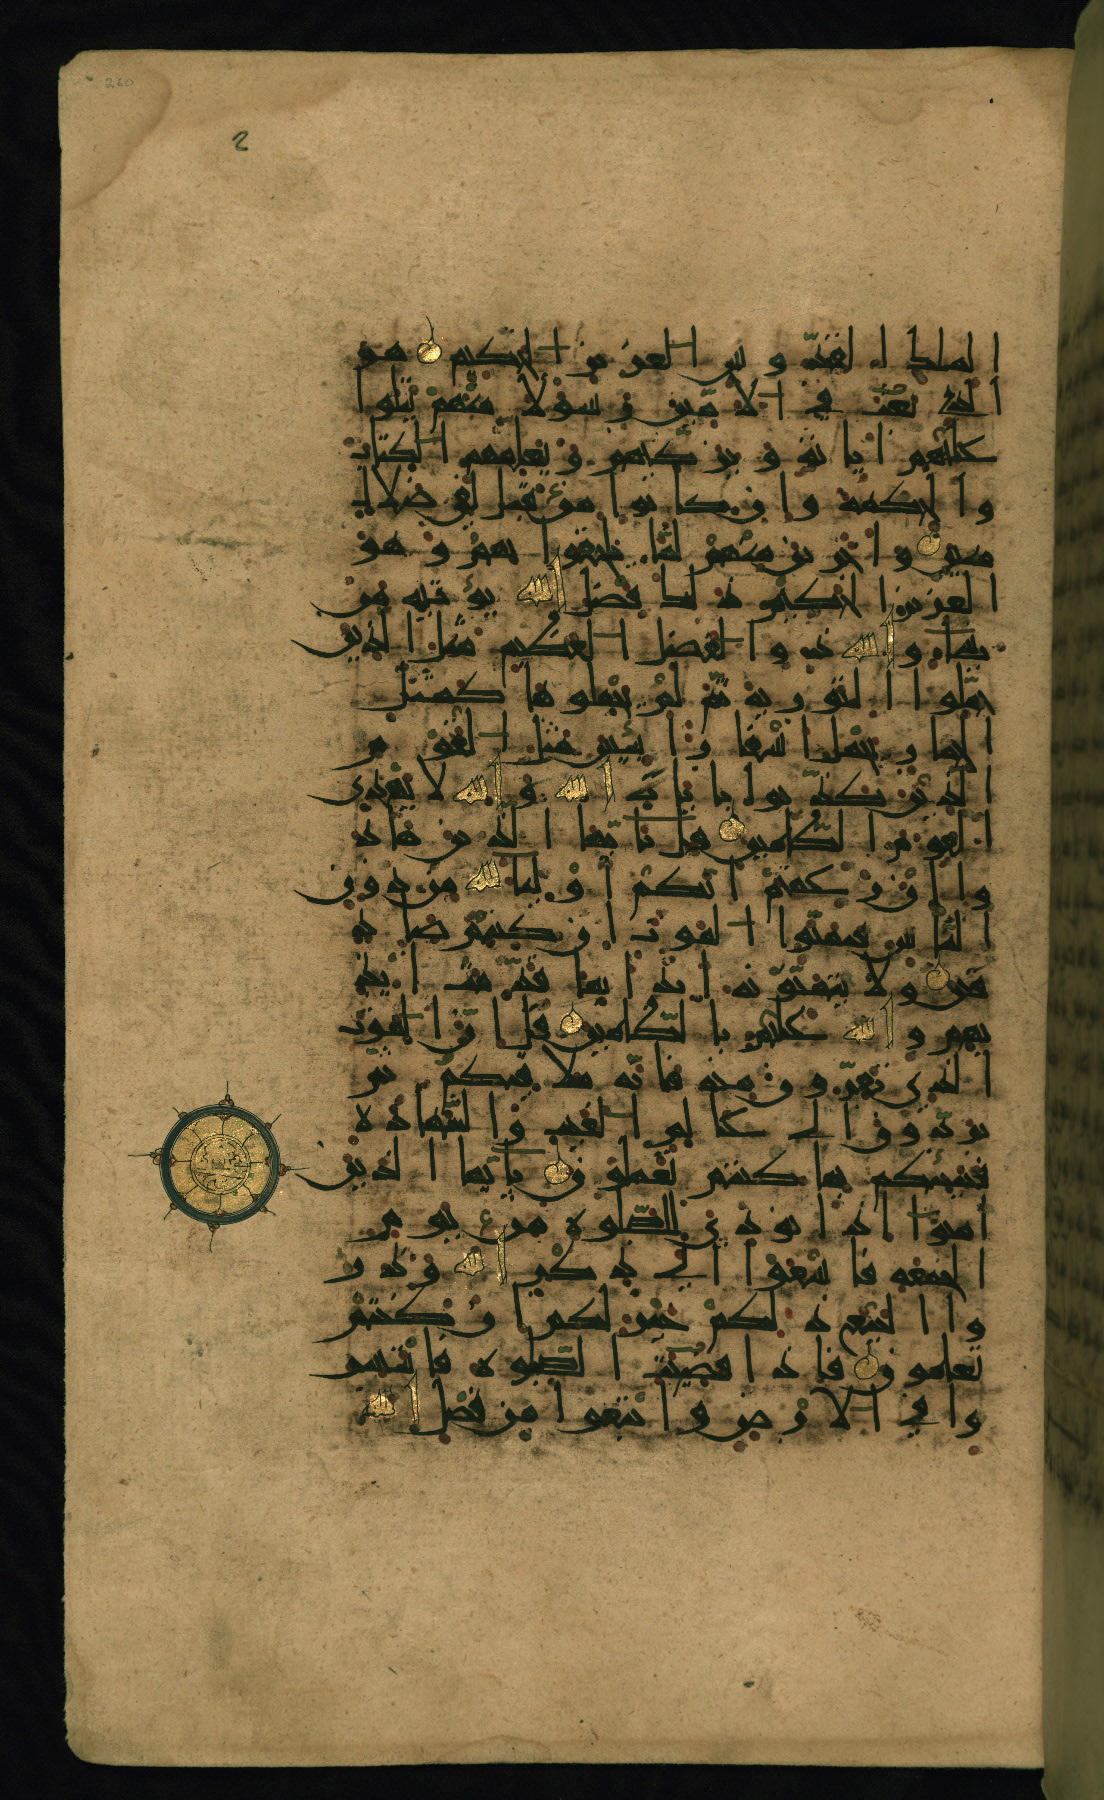 260
2
الملك القدوس العزيز الحكيم هو
الذي بعث في الاميين رسولا منهم يتلوا
عليهم اياته و يزكيهم و يعلمهم الكتاب
والحكمة وان كانوا من قبل لفي ضلال
مبين واخرين منهم لما يلحقوا بهم وهو
العزيز الحكيم ذلك فضل الله يؤتيه من
يشاء والله ذو الفضل العظيم مثل الذين
حملوا التورية ثم لم يحملوها كمثل
الحمار يحمل اسفارا بئس مثل القوم
الذين كذبوا بايات الله والله لا يهدى
القوم الظلمين قل يايها الذين هادوا
ان زعمتم انكم اوليا لله من دون
الناس فتمنوا الموت ان كنتم صاد
قين ولا يتمنونه ابدا بما قدمت ايد
يهم والله عليم بالظلمين قل ان الموت
الذي تفرون منه فانه ملاقيكم ثم
تردون الى عالم الغيب والشهادة
فينبئكم بما كنتم تعملون يايها الذين
امنوا اذا نودي للصلوة من يوم
الجمعة فاسعوا الى ذكر الله وذر
وا البيع ذلكم خير لكم ان كنتم
تعلمون فاذا قضيت الصلوة فانتشر
وا في الارض وابتغوا من فضل الله